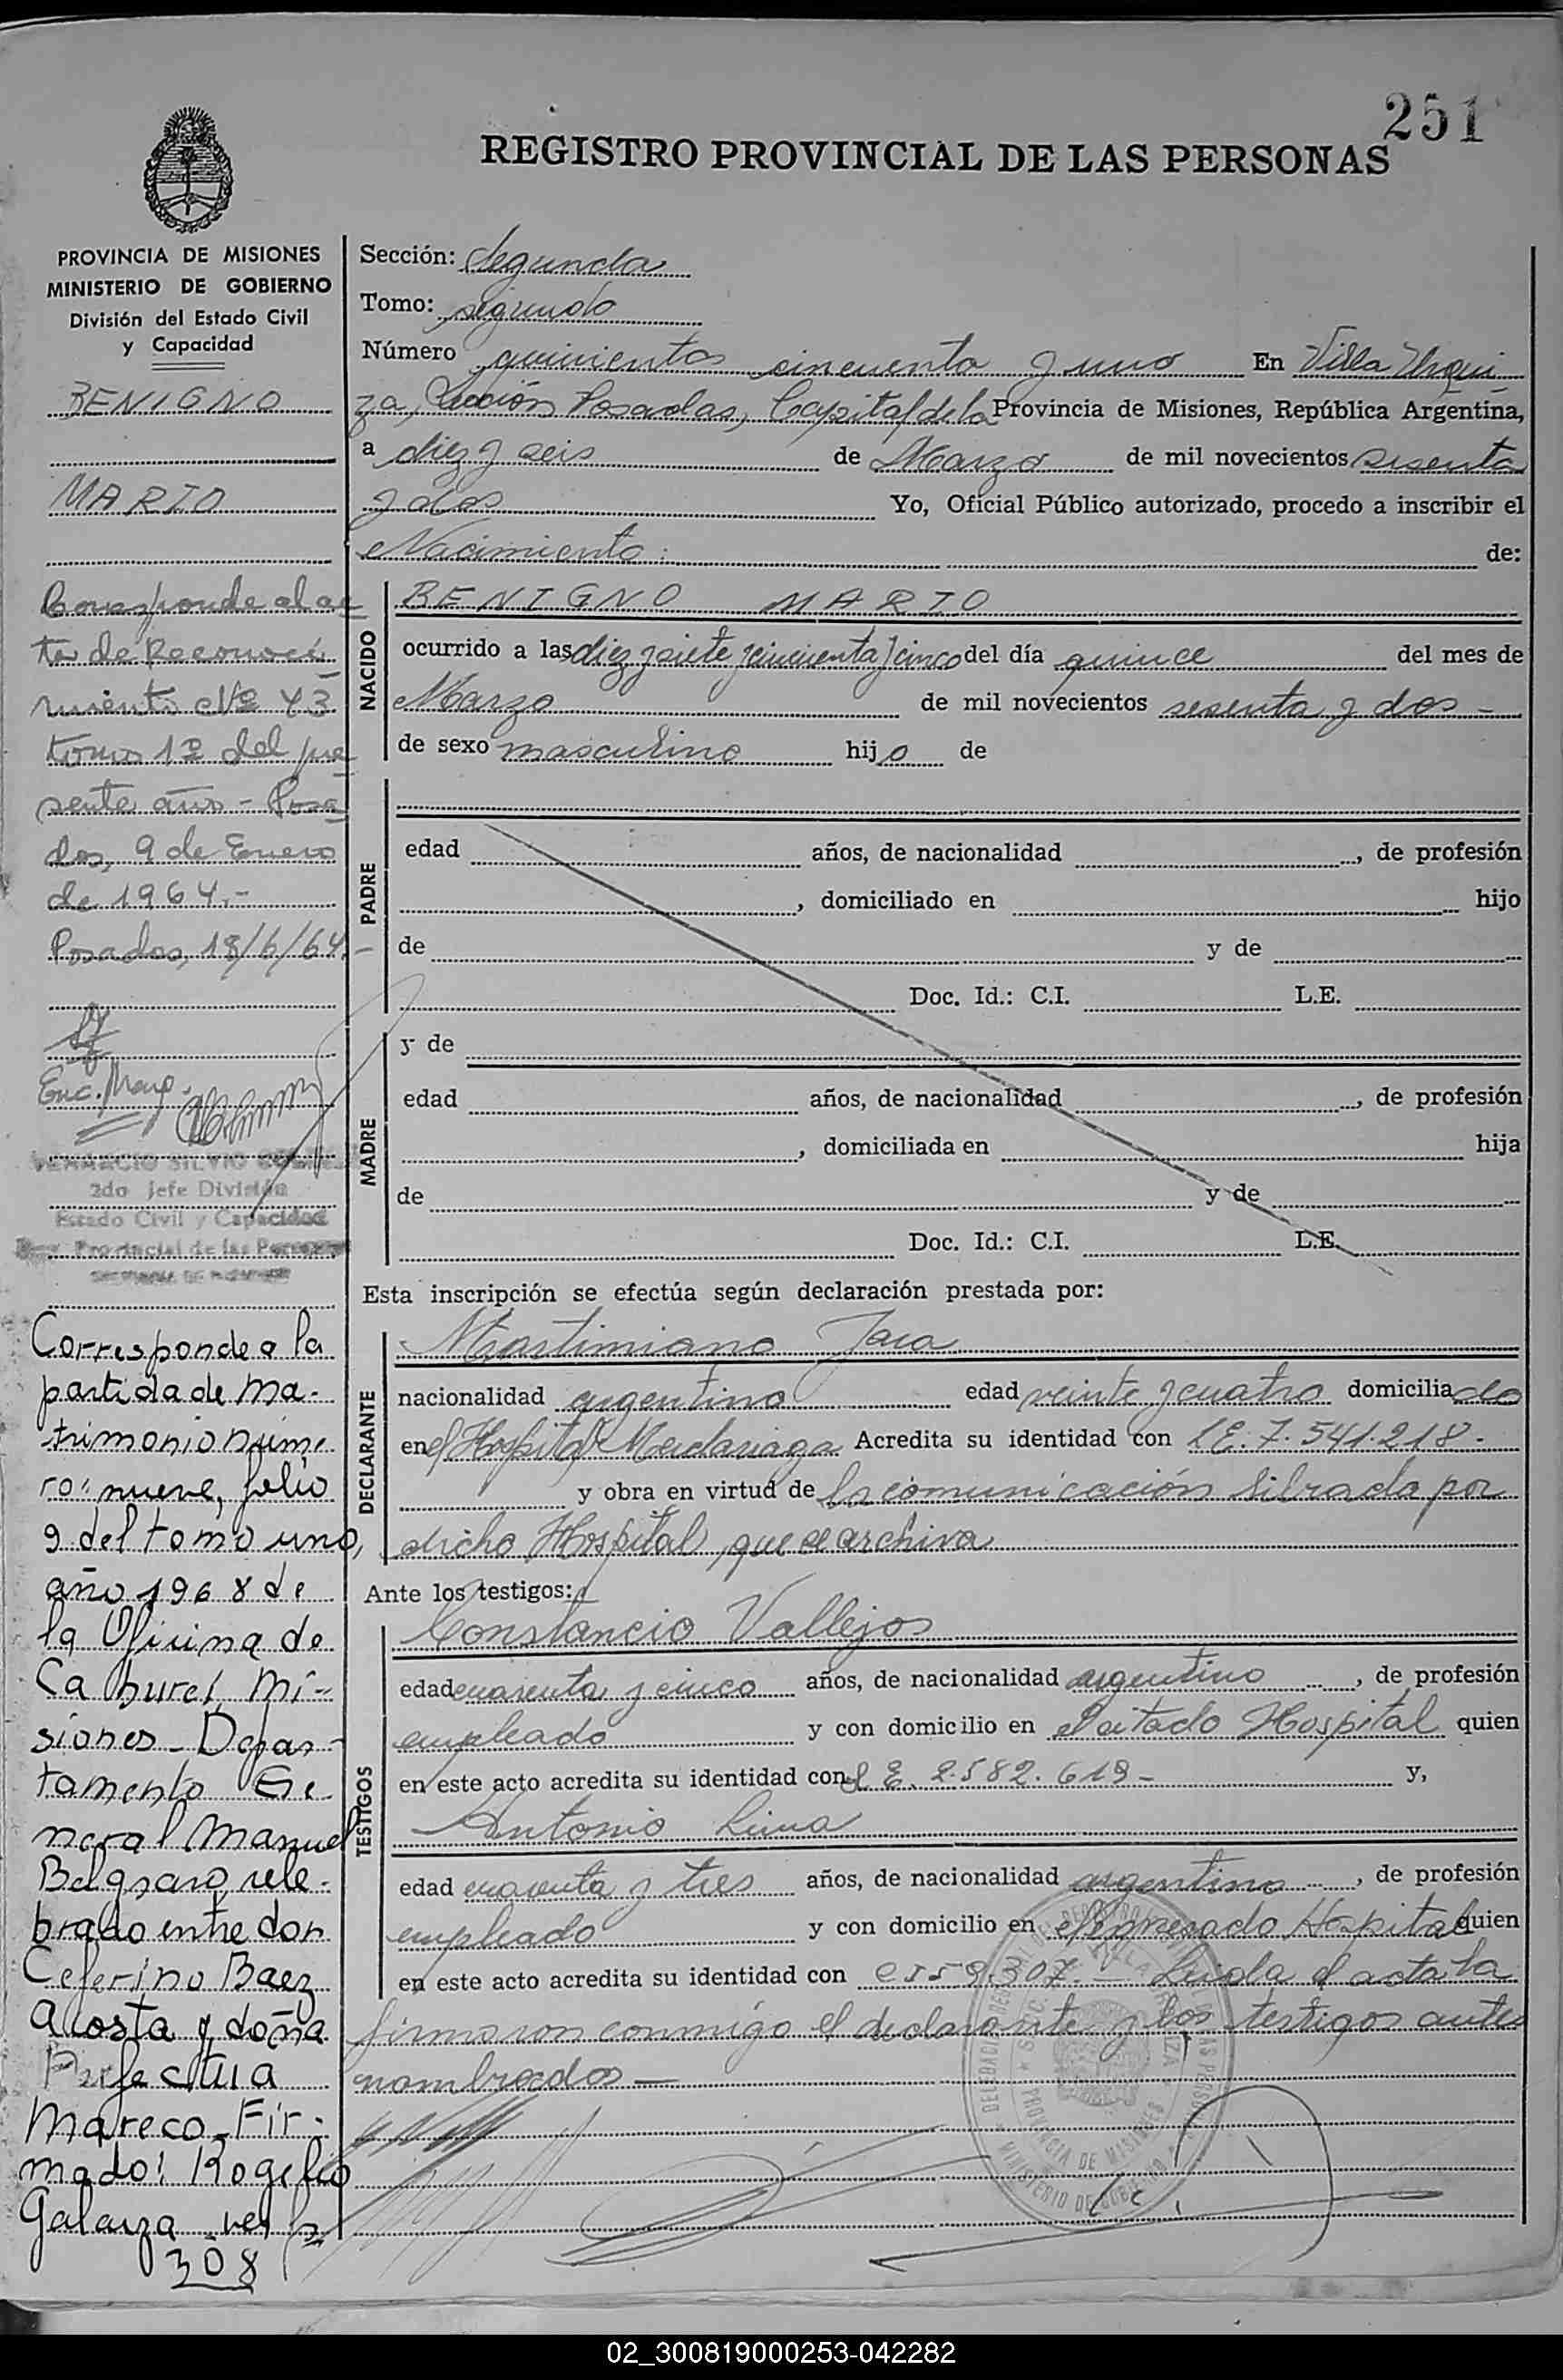 251
REGISTRO PROVINCIAL DE LAS PERSONAS
PROVINCIA DE MISIONES
MINISTERIO DE GOBIERNO
División del Estado Civil
y Capacidad
BENIGNO
MARIO
Corresponde al ac
ta de Reconoci
miento Nº 43
tomo 1º del pre
sente año - Posa
das, 9 de Enero
de 1964.-
Posadas, 18/6/64.-
Enc. Mayo.
SILVIO
2do Jefe División
Estado Civil y Capacidad
Provincial de las Personas
Corresponde a la
partida de ma-
trimonio núme
ro: nueve, folio
9 del tomo uno,
año 1968 de
la Oficina de
Caburei, Mi-
siones - Depar-
tamento Ge-
neral Manuel
Belgrano, cele-
brado entre don
Ceferino Baez
Acosta y doña
Perfecta
Mareco - Fir-
mado: Rogelio
Galarza
308
Sección: Segunda
Tomo: segundo
Número quinientos cincuenta y uno En Villa Urqui
za, Sección Posadas, Capital de la Provincia de Misiones, República Argentina,
a diez y seis de Marzo de mil novecientos sesenta
y dos Yo, Oficial Público autorizado, procedo a inscribir el
Nacimiento: de:
NACIDO
BENIGNO MARIO
ocurrido a las diez y siete y cincuenta y cinco del día quince del mes de
Marzo de mil novecientos sesenta y dos -
de sexo masculino hijo de
PADRE
edad años, de nacionalidad , de profesión
, domiciliado en hijo
de y de
Doc. Id.: C.I. L.E.
MADRE
y de
edad años, de nacionalidad , de profesión
, domiciliada en hija
de y de
Doc. Id.: C.I. L.E.
Esta inscripción se efectúa según declaración prestada por:
DECLARANTE
Martimiano Jara
nacionalidad argentino edad veinte y cuatro domiciliado
en el Hospital Madariaga Acredita su identidad con L.E. 7.541.218.-
y obra en virtud de la comunicación librada por
dicho Hospital, que se archiva
Ante los testigos:
TESTIGOS
Constancio Vallejos
edad cuarenta y cinco años, de nacionalidad argentino , de profesión
empleado y con domicilio en el citado Hospital quien
en este acto acredita su identidad con L.E. 2.582.619 - y,
Antonio Lima
edad cuarenta y tres años, de nacionalidad argentino , de profesión
empleado y con domicilio en el expresado Hospital quien
en este acto acredita su identidad con 1559.307.- Leída el acta la
firmaron conmigo el declarante y los testigos antes
nombrados —
PROVINCIA DE MISIONES
02_300819000253-042282